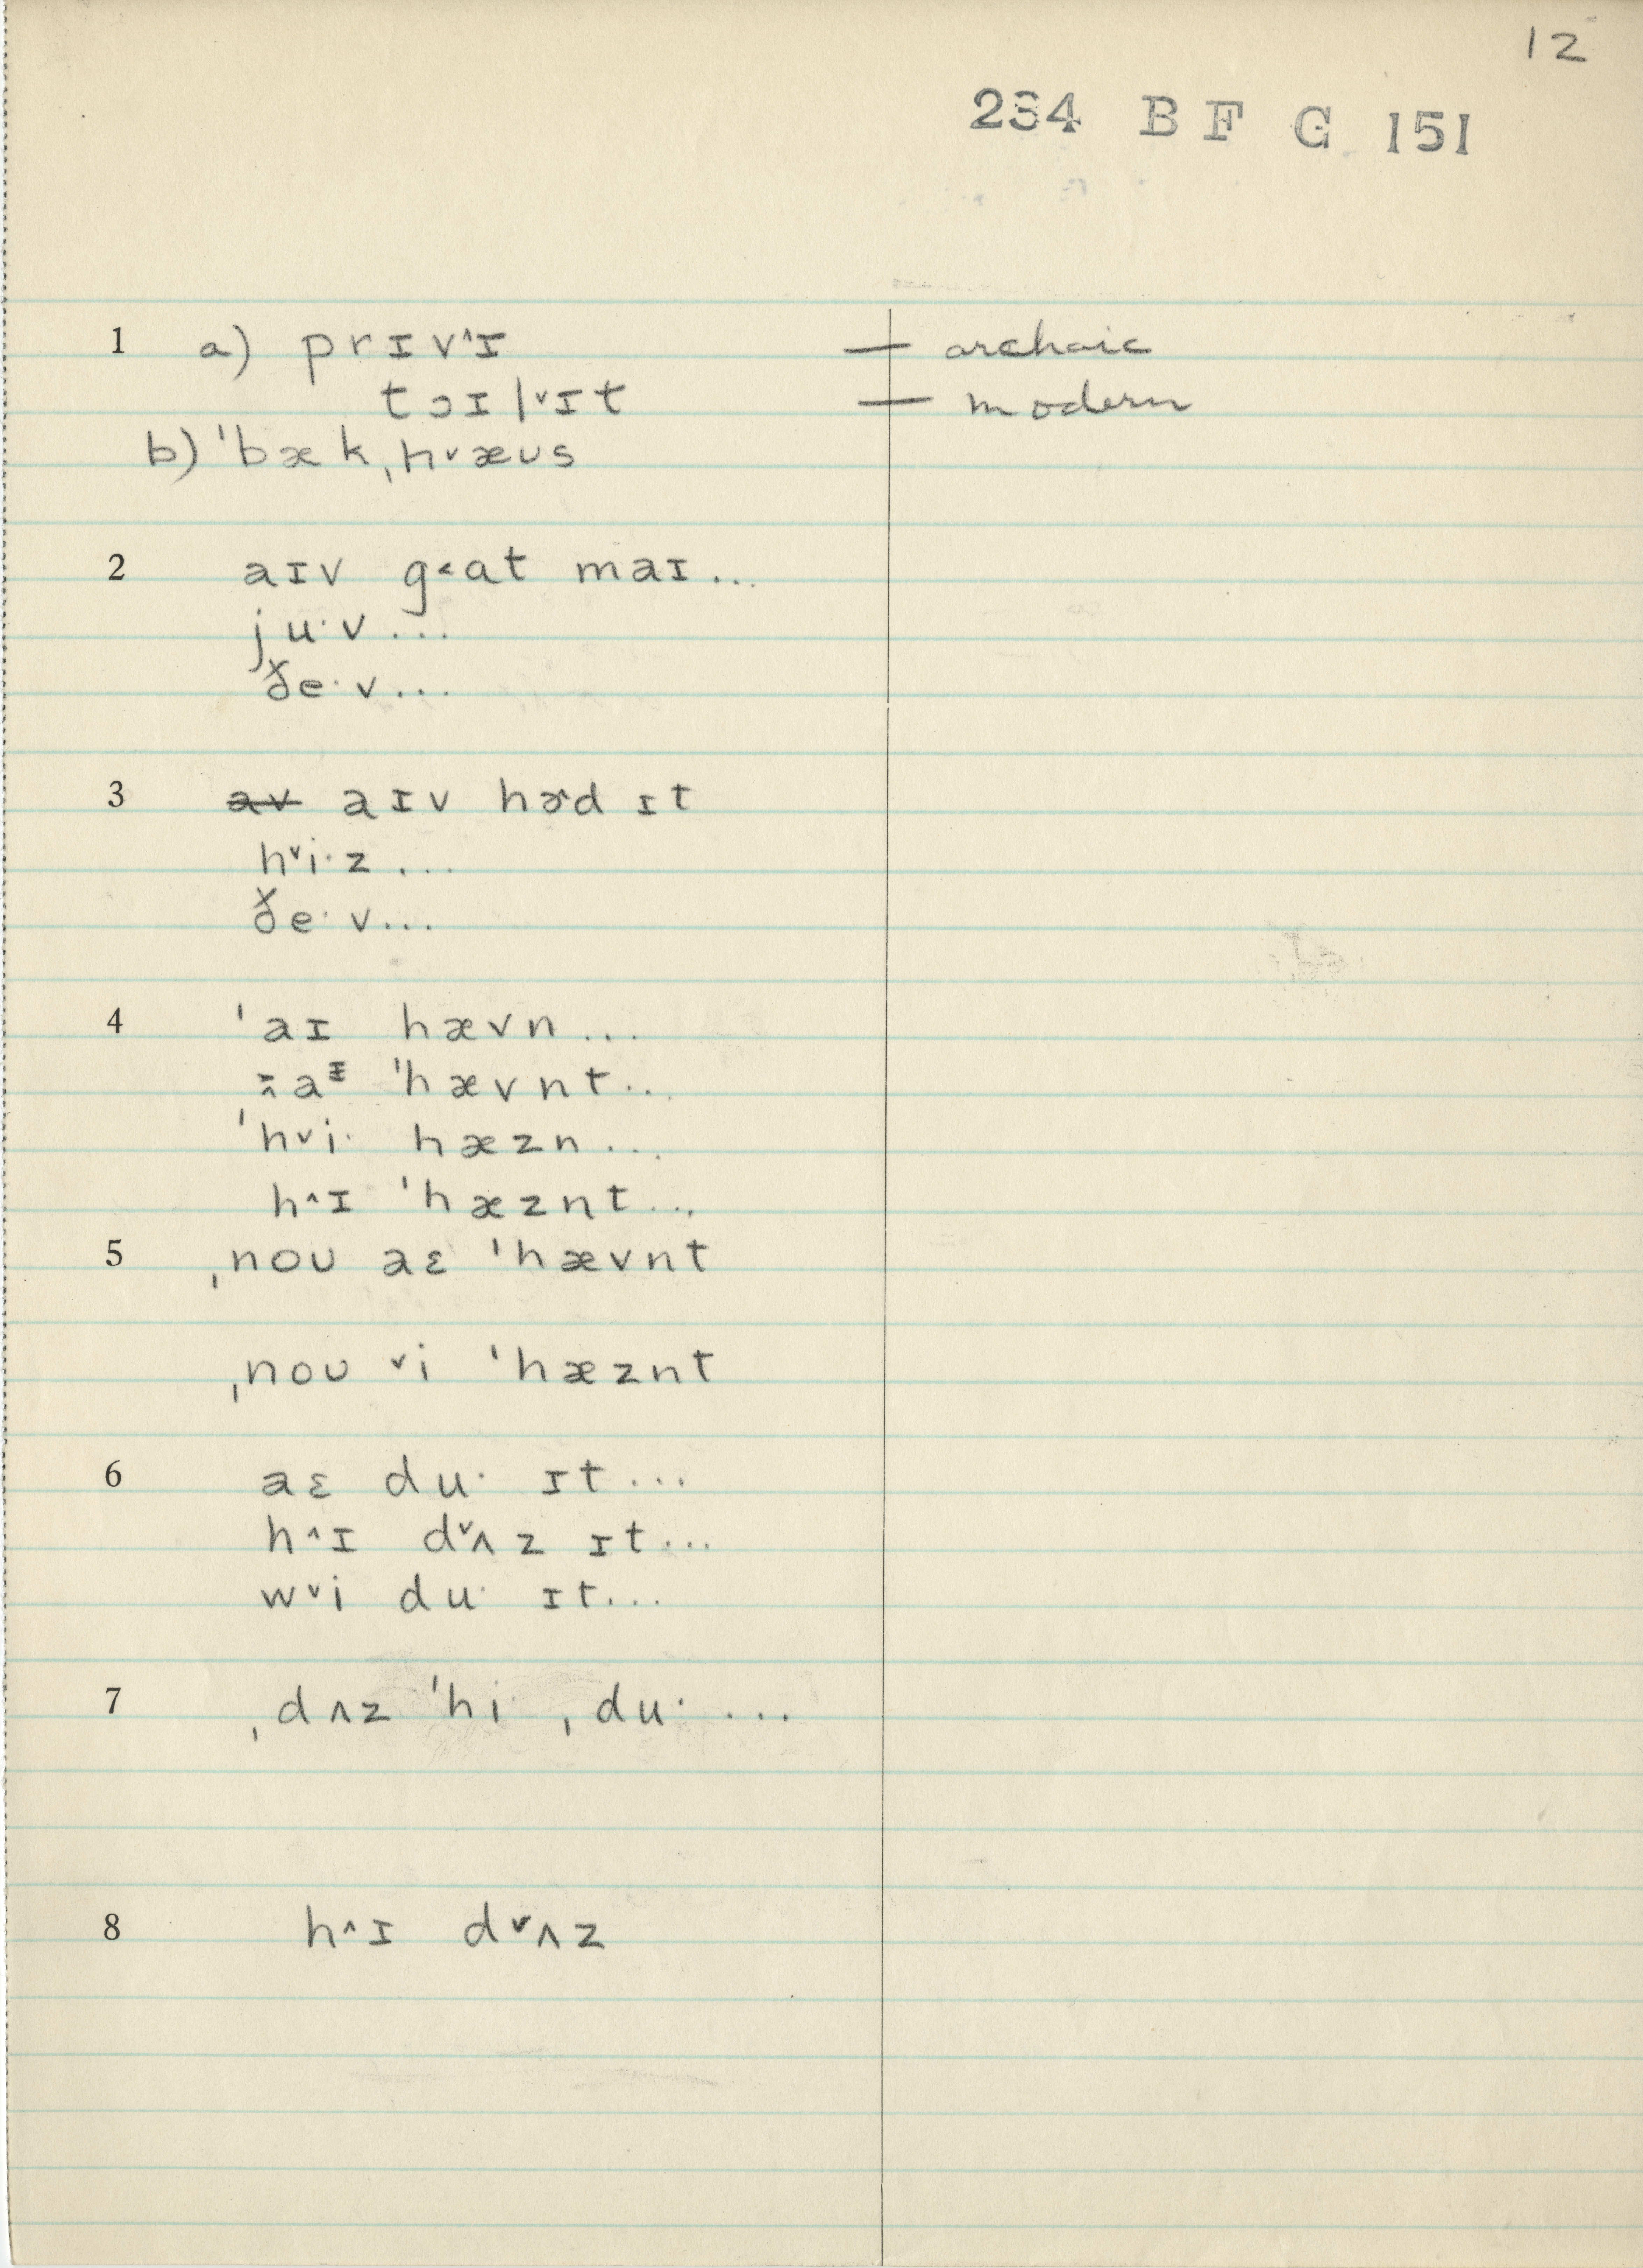 12
234 BF G 151
1 a) prɪv˄ɪ — archaic
tɔɪl˅ɪt — modern
b) ˈbæk ˌh˅æʊs
2 aɪv g˂at maɪ...
ju·v...
ðe·v...
3 av aɪv hɚd ɪt
h˅i·z ...
ðe·v...
4 ˈaɪ hævn...
ˈhævnt...
ˈh˅i· hæzn...
h˄ɪ ˈhæznt...
5 ˌnoʊ aɛ ˈhævnt
ˌnoʊ ˅i ˈhæznt
6 aɛ du· ɪt...
h˄ɪ d˅ʌz ɪt...
w˅i du· ɪt...
7 ˌdʌz ˈhi· ˌdu· ...
8 h˄ɪ d˅ʌz